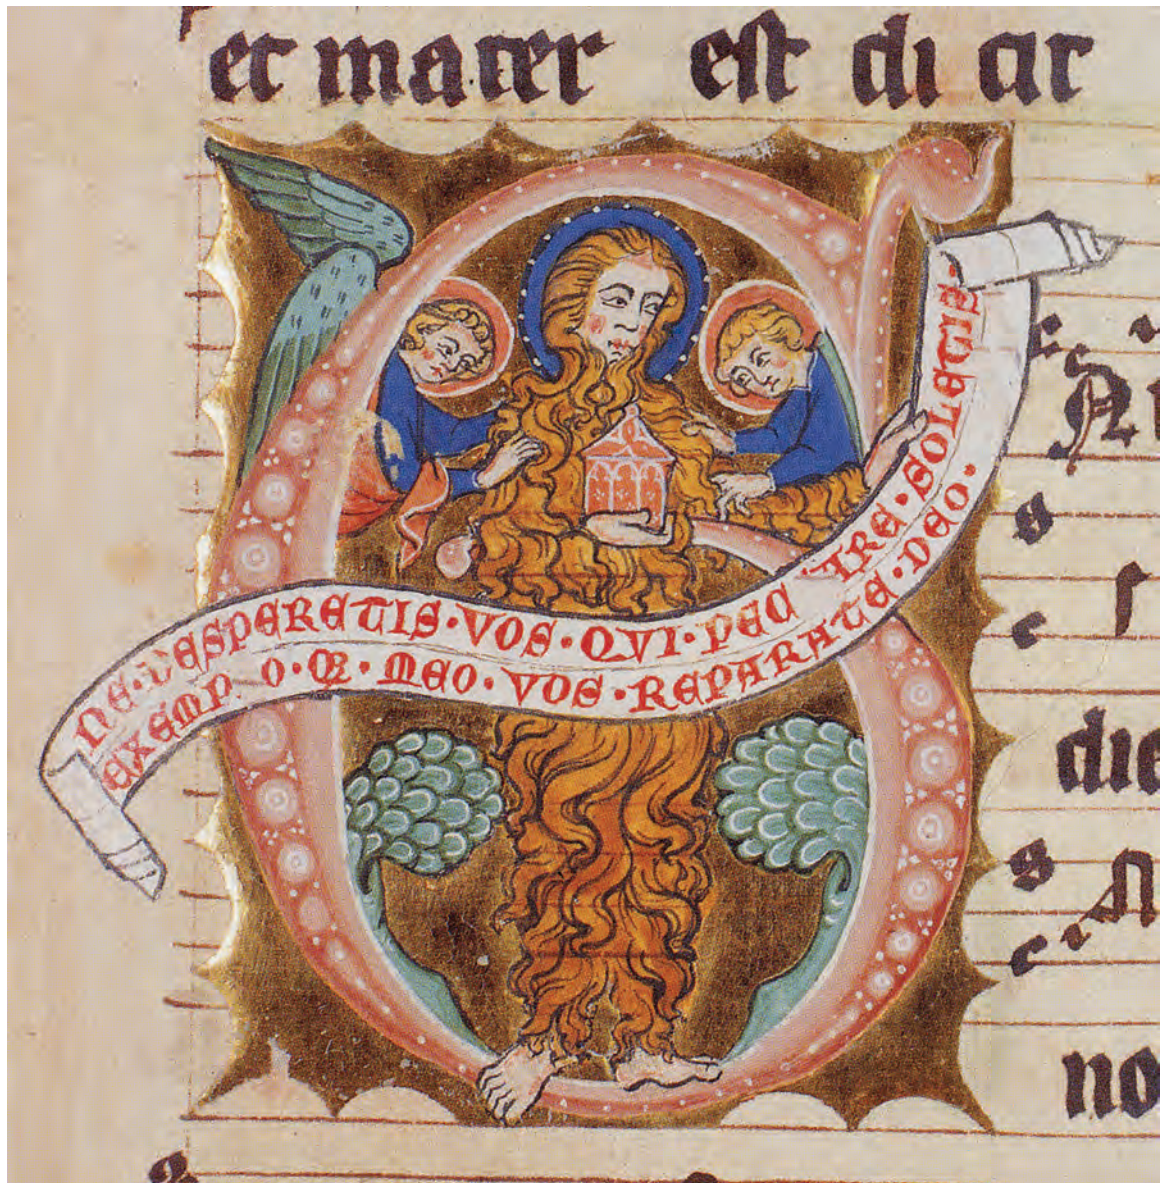 et mater est di cit
NE · DESPERETIS · VOS · QVI · PEC IRE · SOLETIS ·
EXEMP O · Q3 · MEO · VOS · REPARATE · DEO ·
die
no